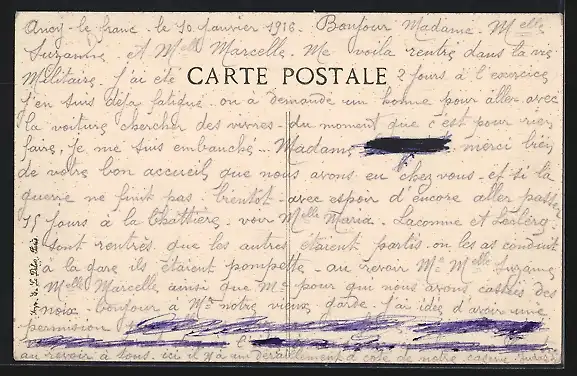 Ancy-le-franc - le 10 Janvier 1916 - Bonjour Madame - Melle
Suzanne et Melle Marcelle. Me voila rentré dans la vie
Militaire. J'ai été 2 jours à l'exercice
CARTE POSTALE
j'en suis déja fatigué - on a demandé un homme pour aller avec
la voiture chercher des vivres - du moment que c'est pour rien
faire, je me suis embauché... Madame merci bien
de votre bon accueil que nous avons eu chez vous - et si la
guerre ne finit pas bientot - avec espoir d'encore aller passer
15 jours à la voir Melle Maria - Lacomme et
sont rentrés que les autres étaient partis - on les as conduit
à la gare ils étaient pompette - au revoir Me Melle Suzanne
Melle Marcelle ainsi que Mr pour qui nous avons cassés des
noix - bonjour a Mr notre vieux garde - J'ai idée d'avoir une
permission
au revoir à tous - ici il y a un déraillement a coté de notre caserne